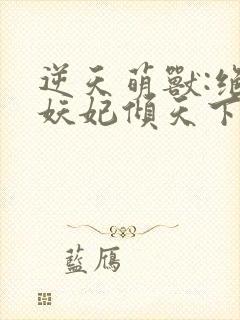 逆天萌獸:絕
妖妃傾天下
藍雁